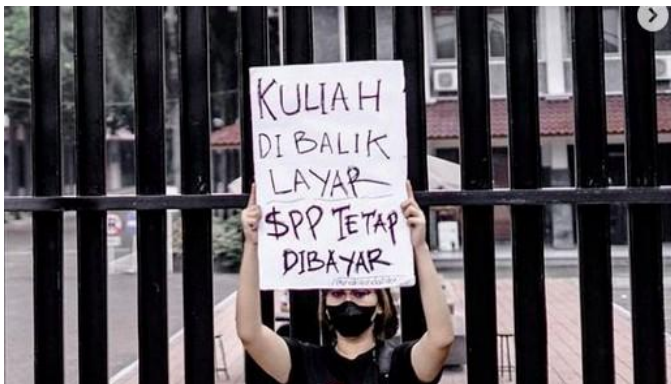 KULIAH
DI BALIK
LAYAR
$PP TETAP
DIBAYAR